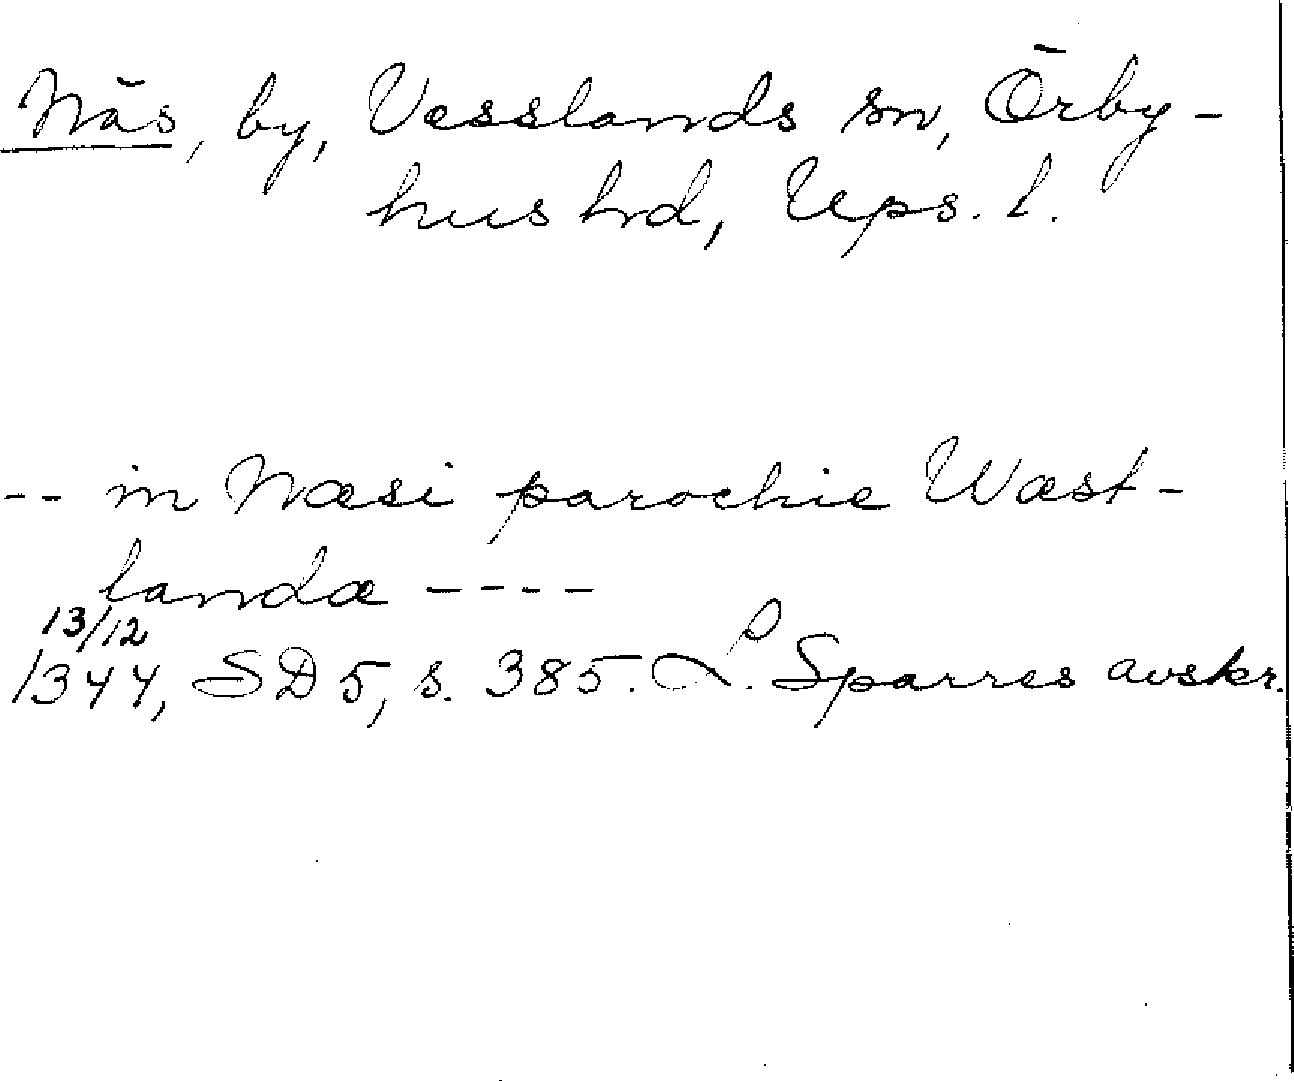 Näs, by, Vesslands sn, Örby-
hus hrd, Ups. l.
-- in Næsi parochie Wæst-
landæ ----
13/12
1344, SD 5, s. 385. L. Sparres avskr.